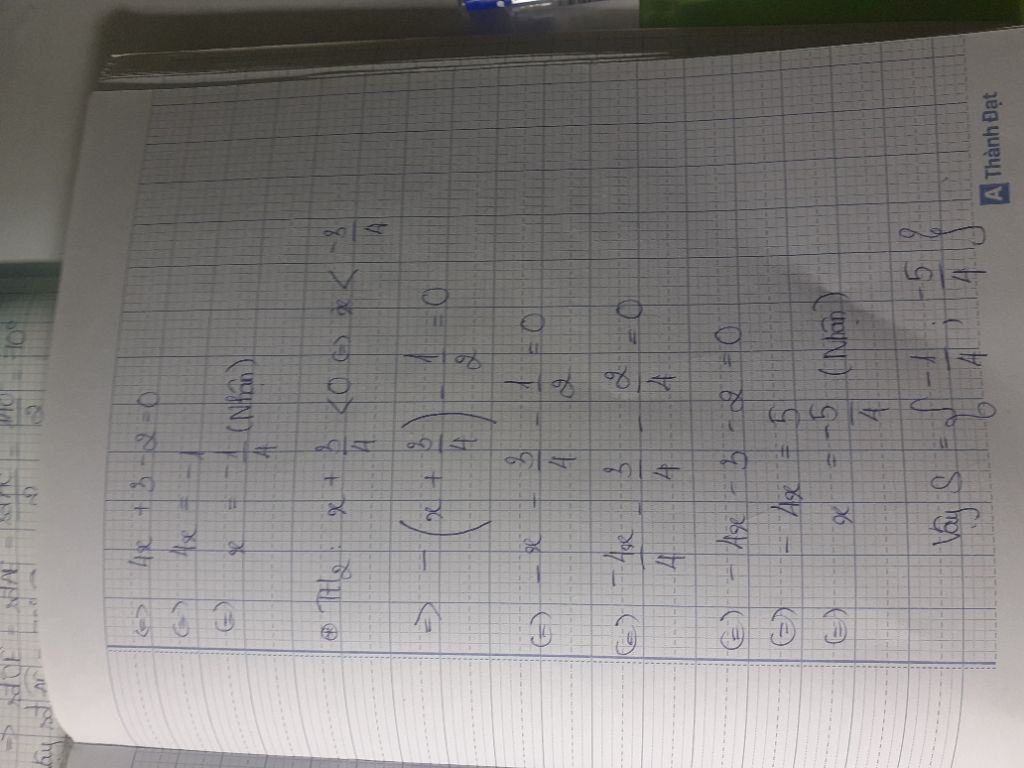 (=) 4x + 3 - 2 = 0
(=) 4x = -1
(=) x = -1/4 (Nhận)
⊕ TH2: x + 3/4 < 0 (=) x < -3/4
=) -(x + 3/4) - 1/2 = 0
(=) -x - 3/4 - 1/2 = 0
(=) -4x/4 - 3/4 - 2/4 = 0
(=) -4x - 3 - 2 = 0
(=) -4x = 5
(=) x = -5/4 (Nhận)
Vậy S = {-1/4; -5/4}
A Thành Đạt